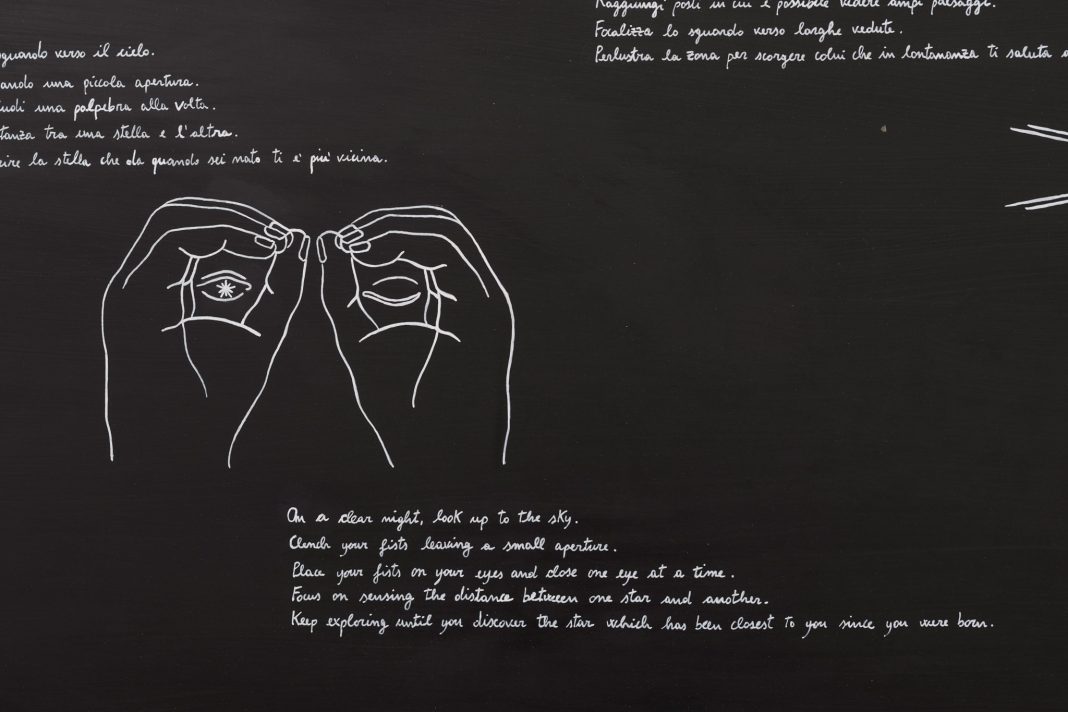 sguardo verso il cielo.
una piccola apertura.
una palpebra alla volta.
tra una stella e l'altra.
la stella che da quando sei nato ti e' piu' vicina.
Raggiungi posti in cui è possibile vedere ampi paesaggi.
Focalizza lo sguardo verso larghe vedute.
Perlustra la zona per scorgere colui che in lontananza ti saluta
On a clear night, look up to the sky.
Clench your fists leaving a small aperture.
Place your fists on your eyes and close one eye at a time.
Focus on sensing the distance between one star and another.
Keep exploring until you discover the star which has been closest to you since you were born.